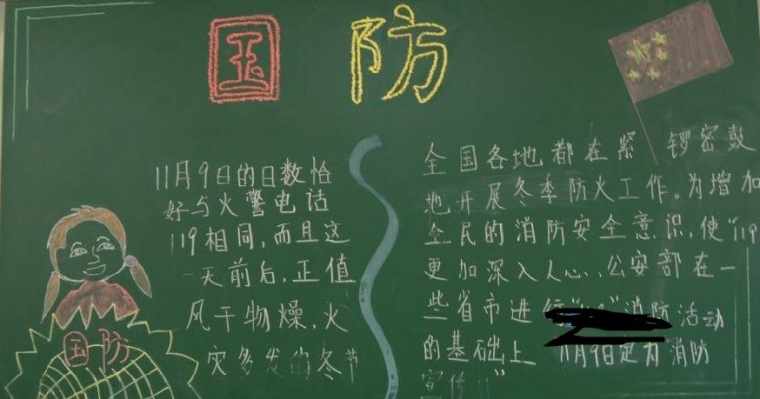 国防
11月9日的日数恰
好与火警电话
119相同,而且这
一天前后,正值
风干物燥,火
灾多发的冬节
全国各地都在紧 锣密鼓
地开展冬季防火工作。为增加
全民的消防安全意识,使"119
更加深入人心、公安部在一
些省市进 消防活动
的基础上 11月9日定为消防
国防